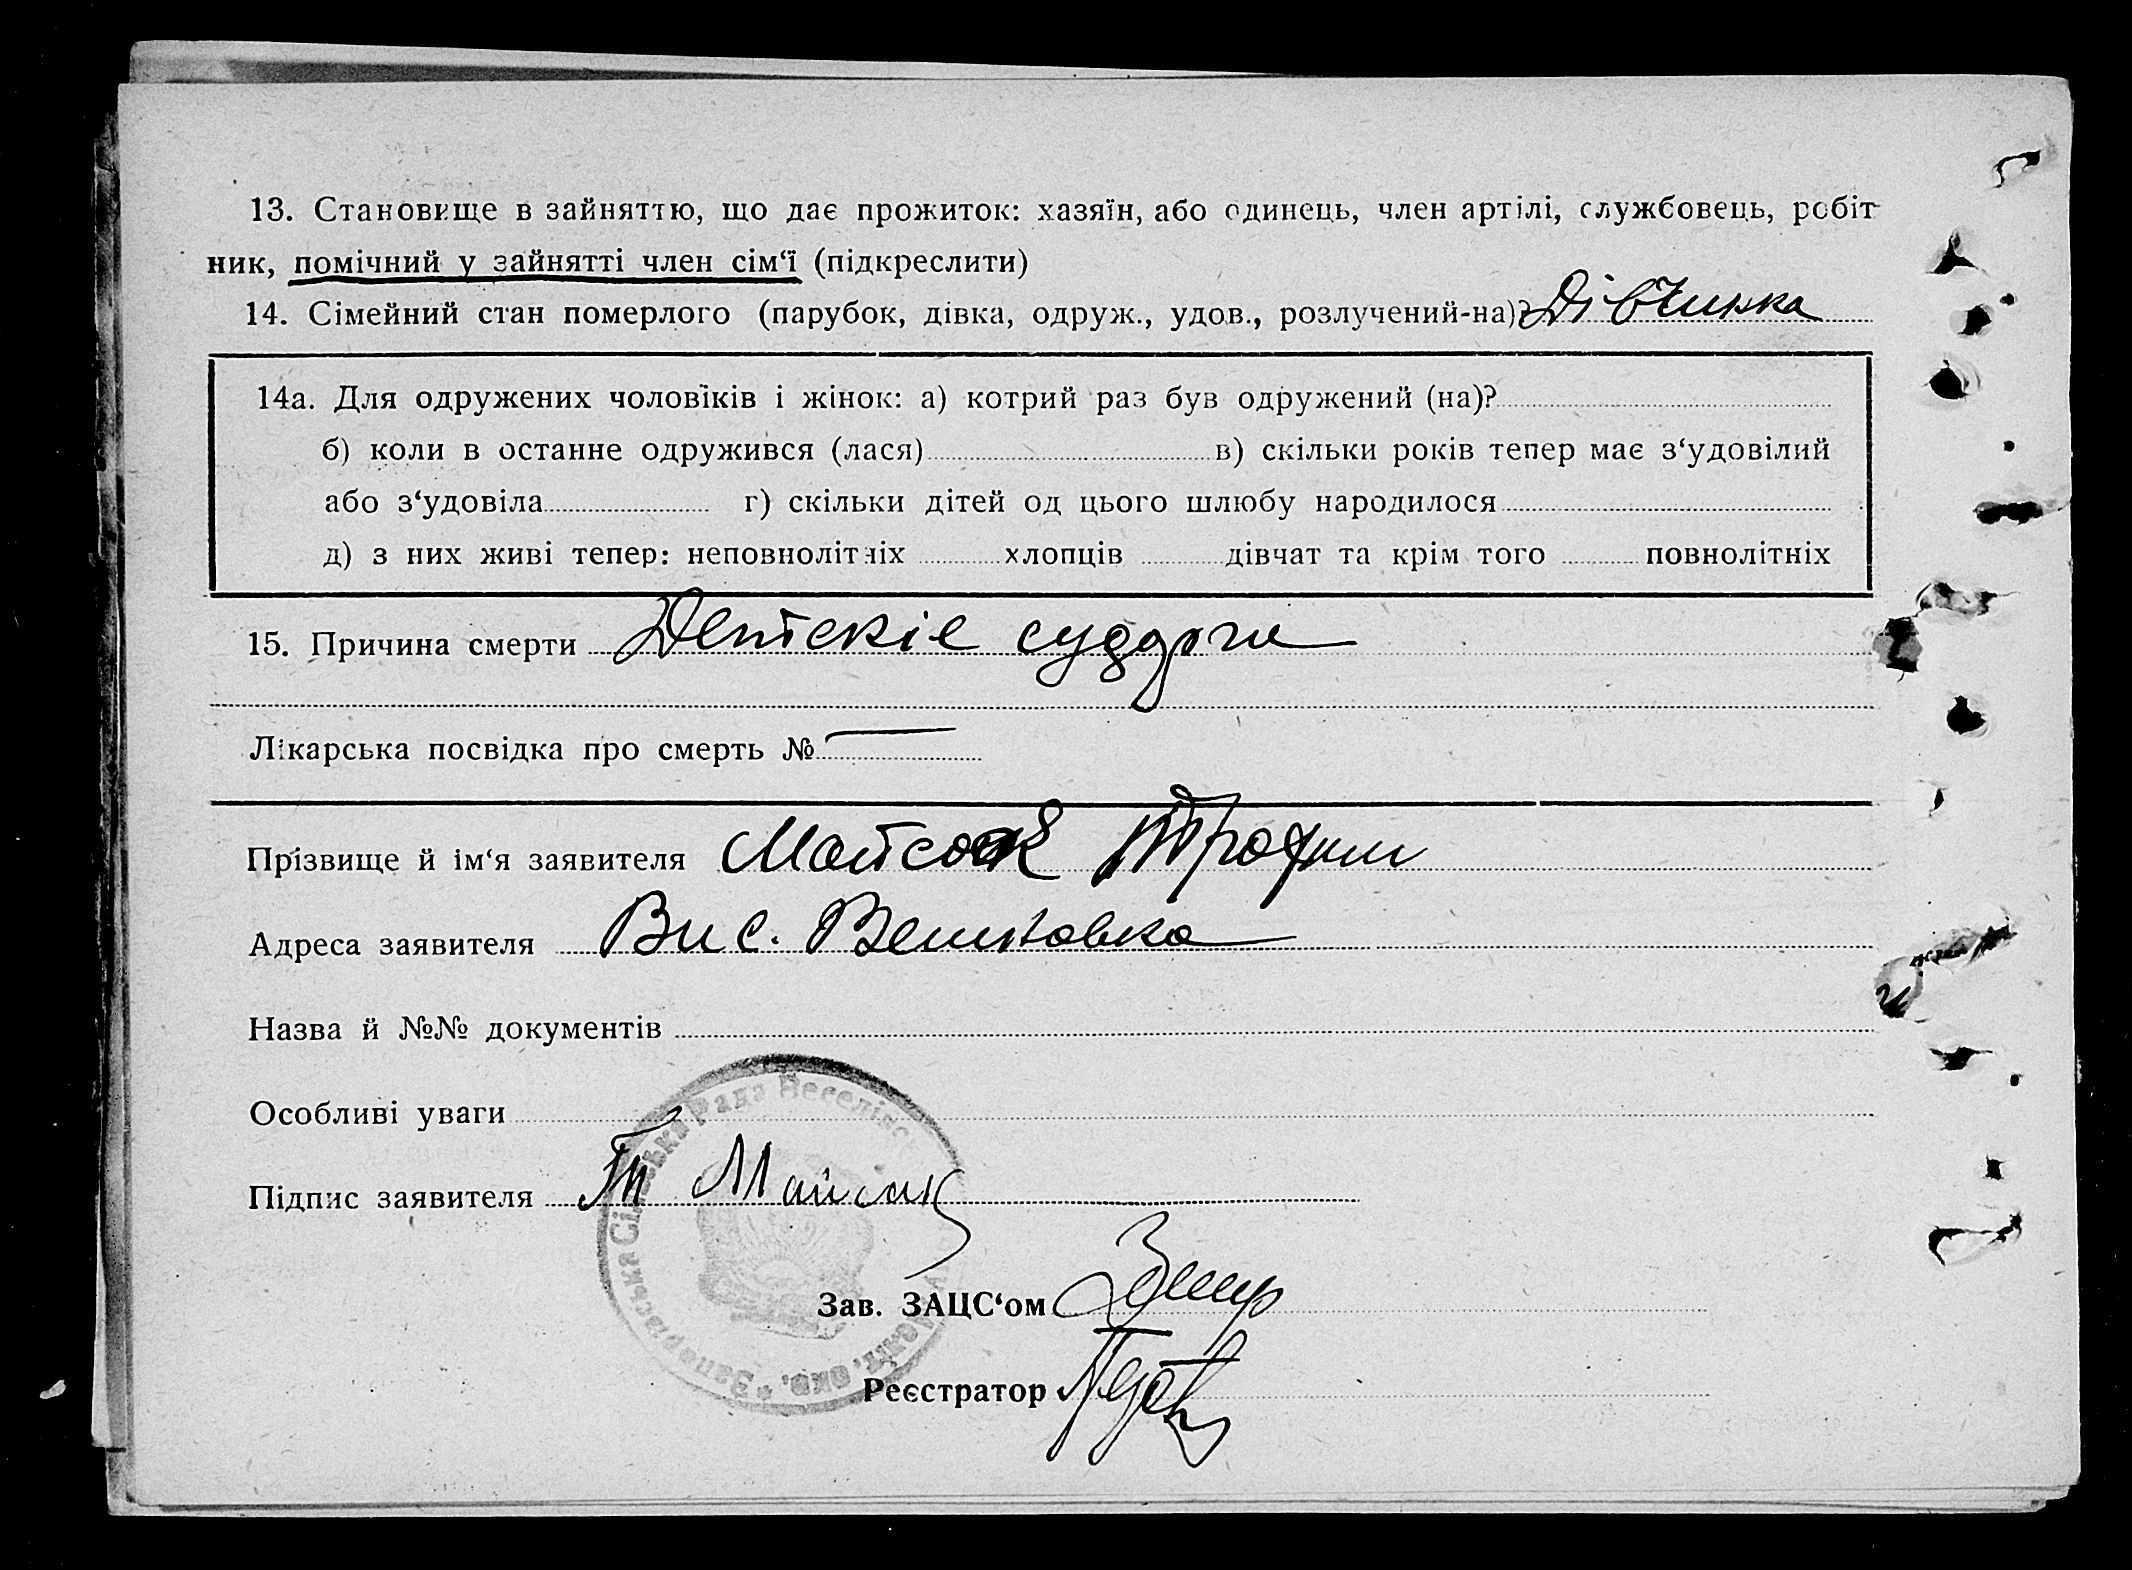 13. Становище в зайняттю, що дає прожиток: хазяїн, або одинець, член артілі, службовець, робіт-
ник, помічний у зайнятті член сім‘ї (підкреслити)
14. Сімейний стан померлого (парубок, дівка, одруж., удов., розлучений-на)? Дівчинка
14а. Для одружених чоловіків і жінок: а) котрий раз був одружений (на)?
б) коли в останне одружився (лася) в) скільки років тепер має з‘удовілий
або з‘удовіла г) скільки дітей од цього шлюбу народилося
д) з них живі тепер: неповнолітніх хлопців дівчат та крім того повнолітніх
15. Причина смерти Детскіе суддрги
Лікарська посвідка про смерть №
Прізвище й ім‘я заявителя Майсак Трофим
Адреса заявителя Вис.
Назва й №№ документів
Особливі уваги
Підпис заявителя Тр Майсак
Зав. ЗАЦС‘ом
Реєстратор
* Запорізька Сільська Рада Веселівськ Меліт. окр.